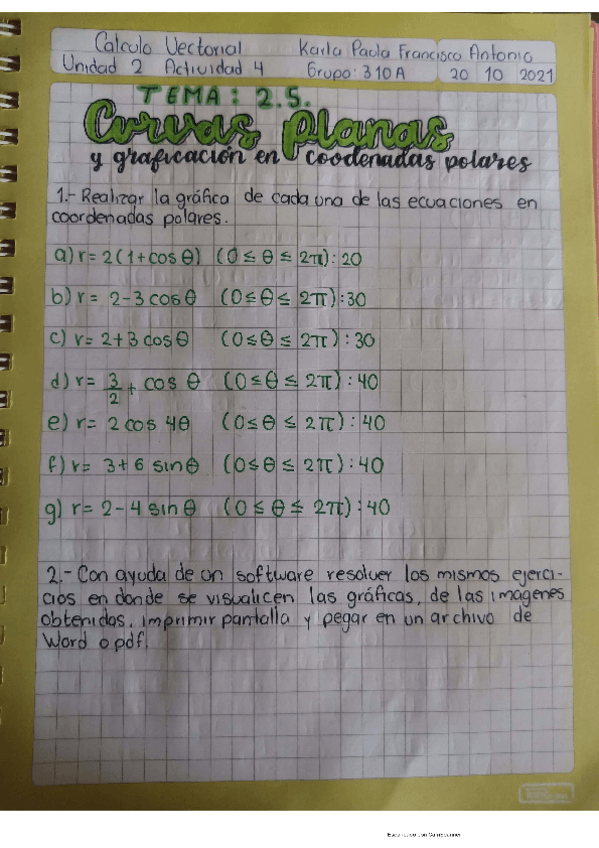 Calculo Vectorial Karla Paola Francisco Antonio
Unidad 2 Actividad 4 Grupo: 310A 20 10 2021
TEMA: 2.5.
Curvas planas
y graficación en coodenadas polares
1.- Realizar la gráfica de cada una de las ecuaciones en
coordenadas polares.
a) r= 2(1+cos θ) (0 ≤ θ ≤ 2π):20
b) r= 2-3 cos θ (0≤θ≤ 2π):30
c) r= 2+3 cos θ (0≤θ ≤ 2π):30
d) r= 3/2 + cos θ (0≤θ ≤ 2π):40
e) r= 2 cos 4θ (0≤θ ≤ 2π):40
f) r= 3+6 sin θ (0≤θ ≤ 2π):40
g) r= 2-4 sin θ (0 ≤ θ ≤ 2π):40
2.- Con ayuda de un software resolver los mismos ejerci-
cios en donde se visualicen las gráficas, de las imagenes
obtenidas, imprimir pantalla y pegar en un archivo de
Word o pdf.
Escaneado con CamScanner